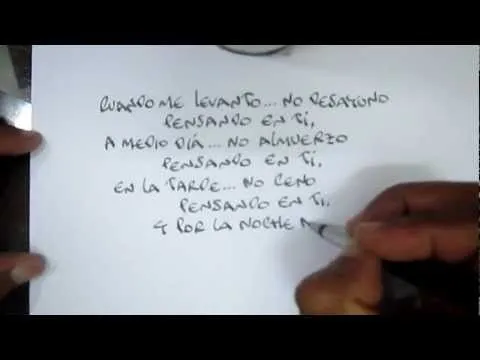 CUANDO ME LEVANTO... NO DESAYUNO
PENSANDO EN TÍ,
A MEDIO DÍA... NO ALMUERZO
PENSANDO EN TÍ,
EN LA TARDE... NO CENO
PENSANDO EN TI,
Y POR LA NOCHE N